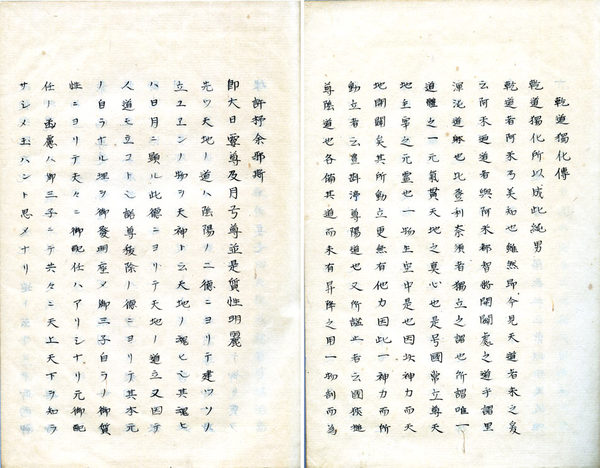 乾道獨化傳
乾道獨化所以成此純男
乾道者阿米乃美知也雖然即今見天道者未之爰
云阿米道道者與阿米都智將開闢處之道乎謂里
渾沌道眛也比登利奈須者獨立之謂也所謂唯一
道體之一元氣貫天地之真心也是号國常立尊天
地主宰之元靈也一物生空中是也因玆神力而天
地開闢矣其所動立更無有他力因此一神力而所
動立者云豊斟渟尊陽道也又所謐上者云國狹槌
尊陰道也各備其道而未有昇降之用一物剖而為
訶抒余那斯
即大日孁尊及月弓尊並是質性明麗
先ツ天地ノ道ハ陰陽ノ二德ニヨリテ建ツソノ
立ユエンノ物ヲ天神ト云天地ノ魂ヒ其魂ヒ
ハ日月ニ顯ル此德ニヨリテ天地ノ道立又因テ
人道モ立コト諾尊除ノ德ニヨリテ其本元
ノ自ラナル理ヲ御發明座メ御三子自ラノ御質
性ニヨリテ夫々ニ御配任ハアリシナリ元御配
任ノ麗ハ御三子ニテ共々ニ天上天下ヲ知ラ
サシメ玉ハント思メナリ